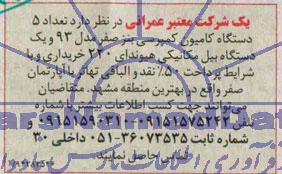 یک شرکت معتبر عمرانی در نظر دارد تعداد ۵
دستگاه کامیون کمپرسی بنز صفر مدل ۹۳ و یک
دستگاه بیل مکانیکی هیوندای ۲۲۰ خریداری و با
شرایط پرداخت ۵۰٪ نقد و الباقی تهاتر با آپارتمان
صفر واقع در بهترین منطقه مشهد. متقاضیان
می‌توانند جهت کسب اطلاعات بیشتر با شماره
تلفن ۰۹۱۵۱۵۷۵۲۴۲ - ۰۹۱۵۱۵۹۰۳۱۰ و
شماره ثابت ۳۶۰۷۳۵۳۵-۰۵۱ داخلی ۳۰
تماس حاصل نمایند